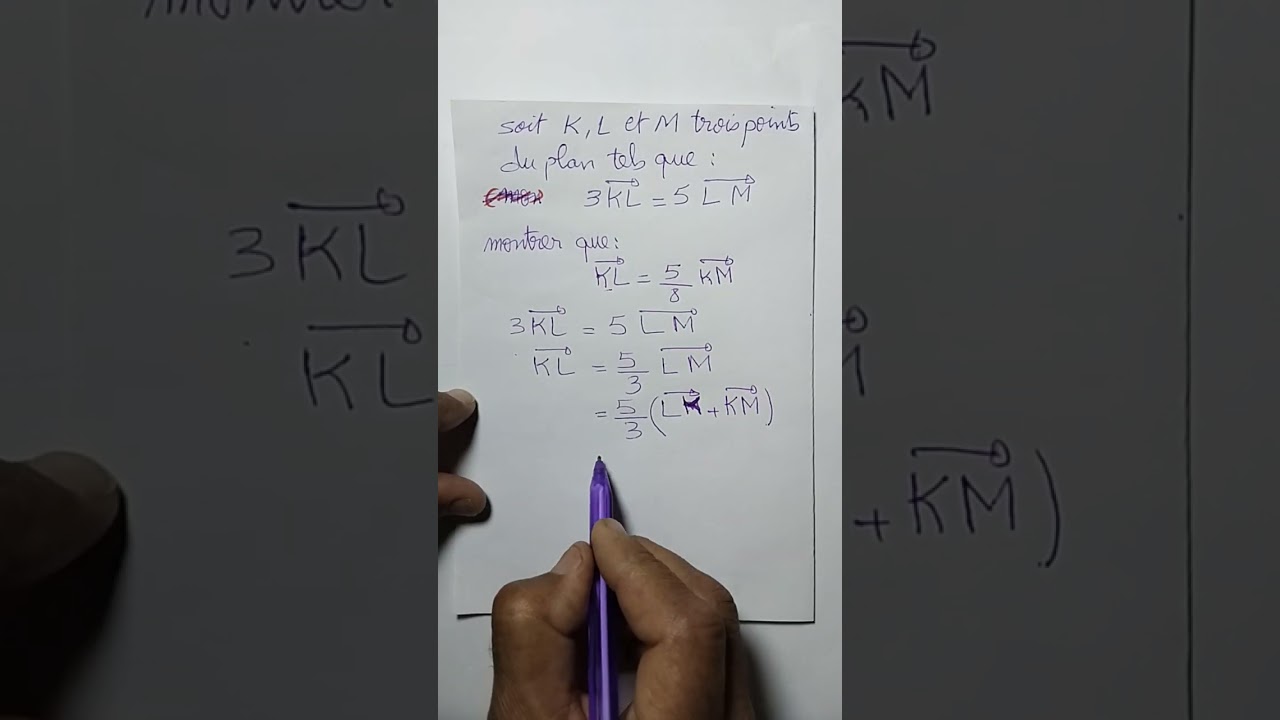 soit K, L et M trois points
du plan tels que :
3KL = 5 LM
montrer que :
KL = 5/8 KM
3KL = 5 LM
KL = 5/3 LM
= 5/3 (LK + KM)